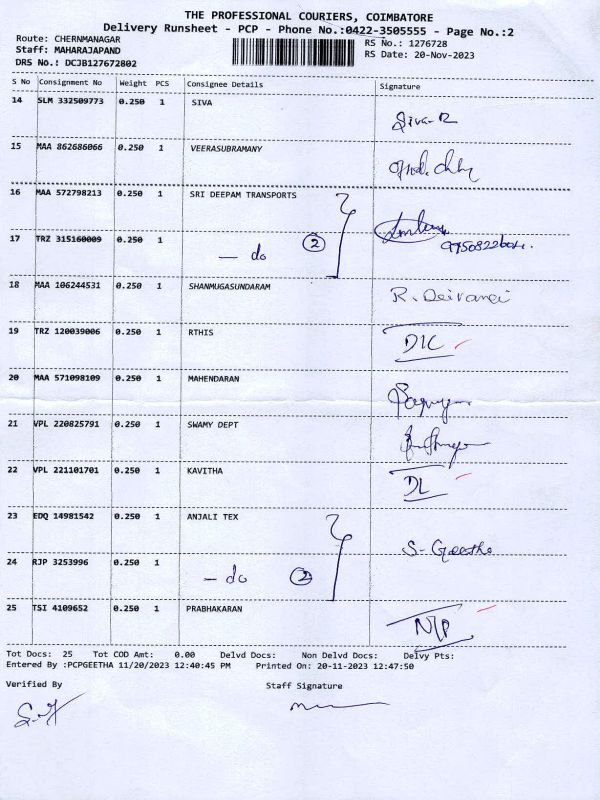 THE PROFESSIONAL COURIERS, COIMBATORE
Delivery Runsheet - PCP - Phone No.:0422-3505555 - Page No.:2
Route: CHERNMANAGAR
RS No.: 1276728
Staff: MAHARAJAPAND
RS Date: 20-Nov-2023
DRS No.: DCJB127672802
S No Consignment No Weight PCS Consignee Details Signature
14 SLM 332509773 0.250 1 SIVA
Siva R
15 MAA 862686066 0.250 1 VEERASUBRAMANY
16 MAA 572798213 0.250 1 SRI DEEPAM TRANSPORTS
17 TRZ 315160009 0.250 1 — do ②
18 MAA 106244531 0.250 1 SHANMUGASUNDARAM
R. Deivanei
19 TRZ 120039006 0.250 1 RTHIS
DIC
20 MAA 571098109 0.250 1 MAHENDARAN
21 VPL 220825791 0.250 1 SWAMY DEPT
22 VPL 221101701 0.250 1 KAVITHA
DL
23 EDQ 14981542 0.250 1 ANJALI TEX
S- Geetha
24 RJP 3253996 0.250 1 — do ②
25 TSI 4109652 0.250 1 PRABHAKARAN
N/P
Tot Docs: 25 Tot COD Amt: 0.00 Delvd Docs: Non Delvd Docs: Delvy Pts:
Entered By :PCPGEETHA 11/20/2023 12:40:45 PM Printed On: 20-11-2023 12:47:50
Verified By Staff Signature